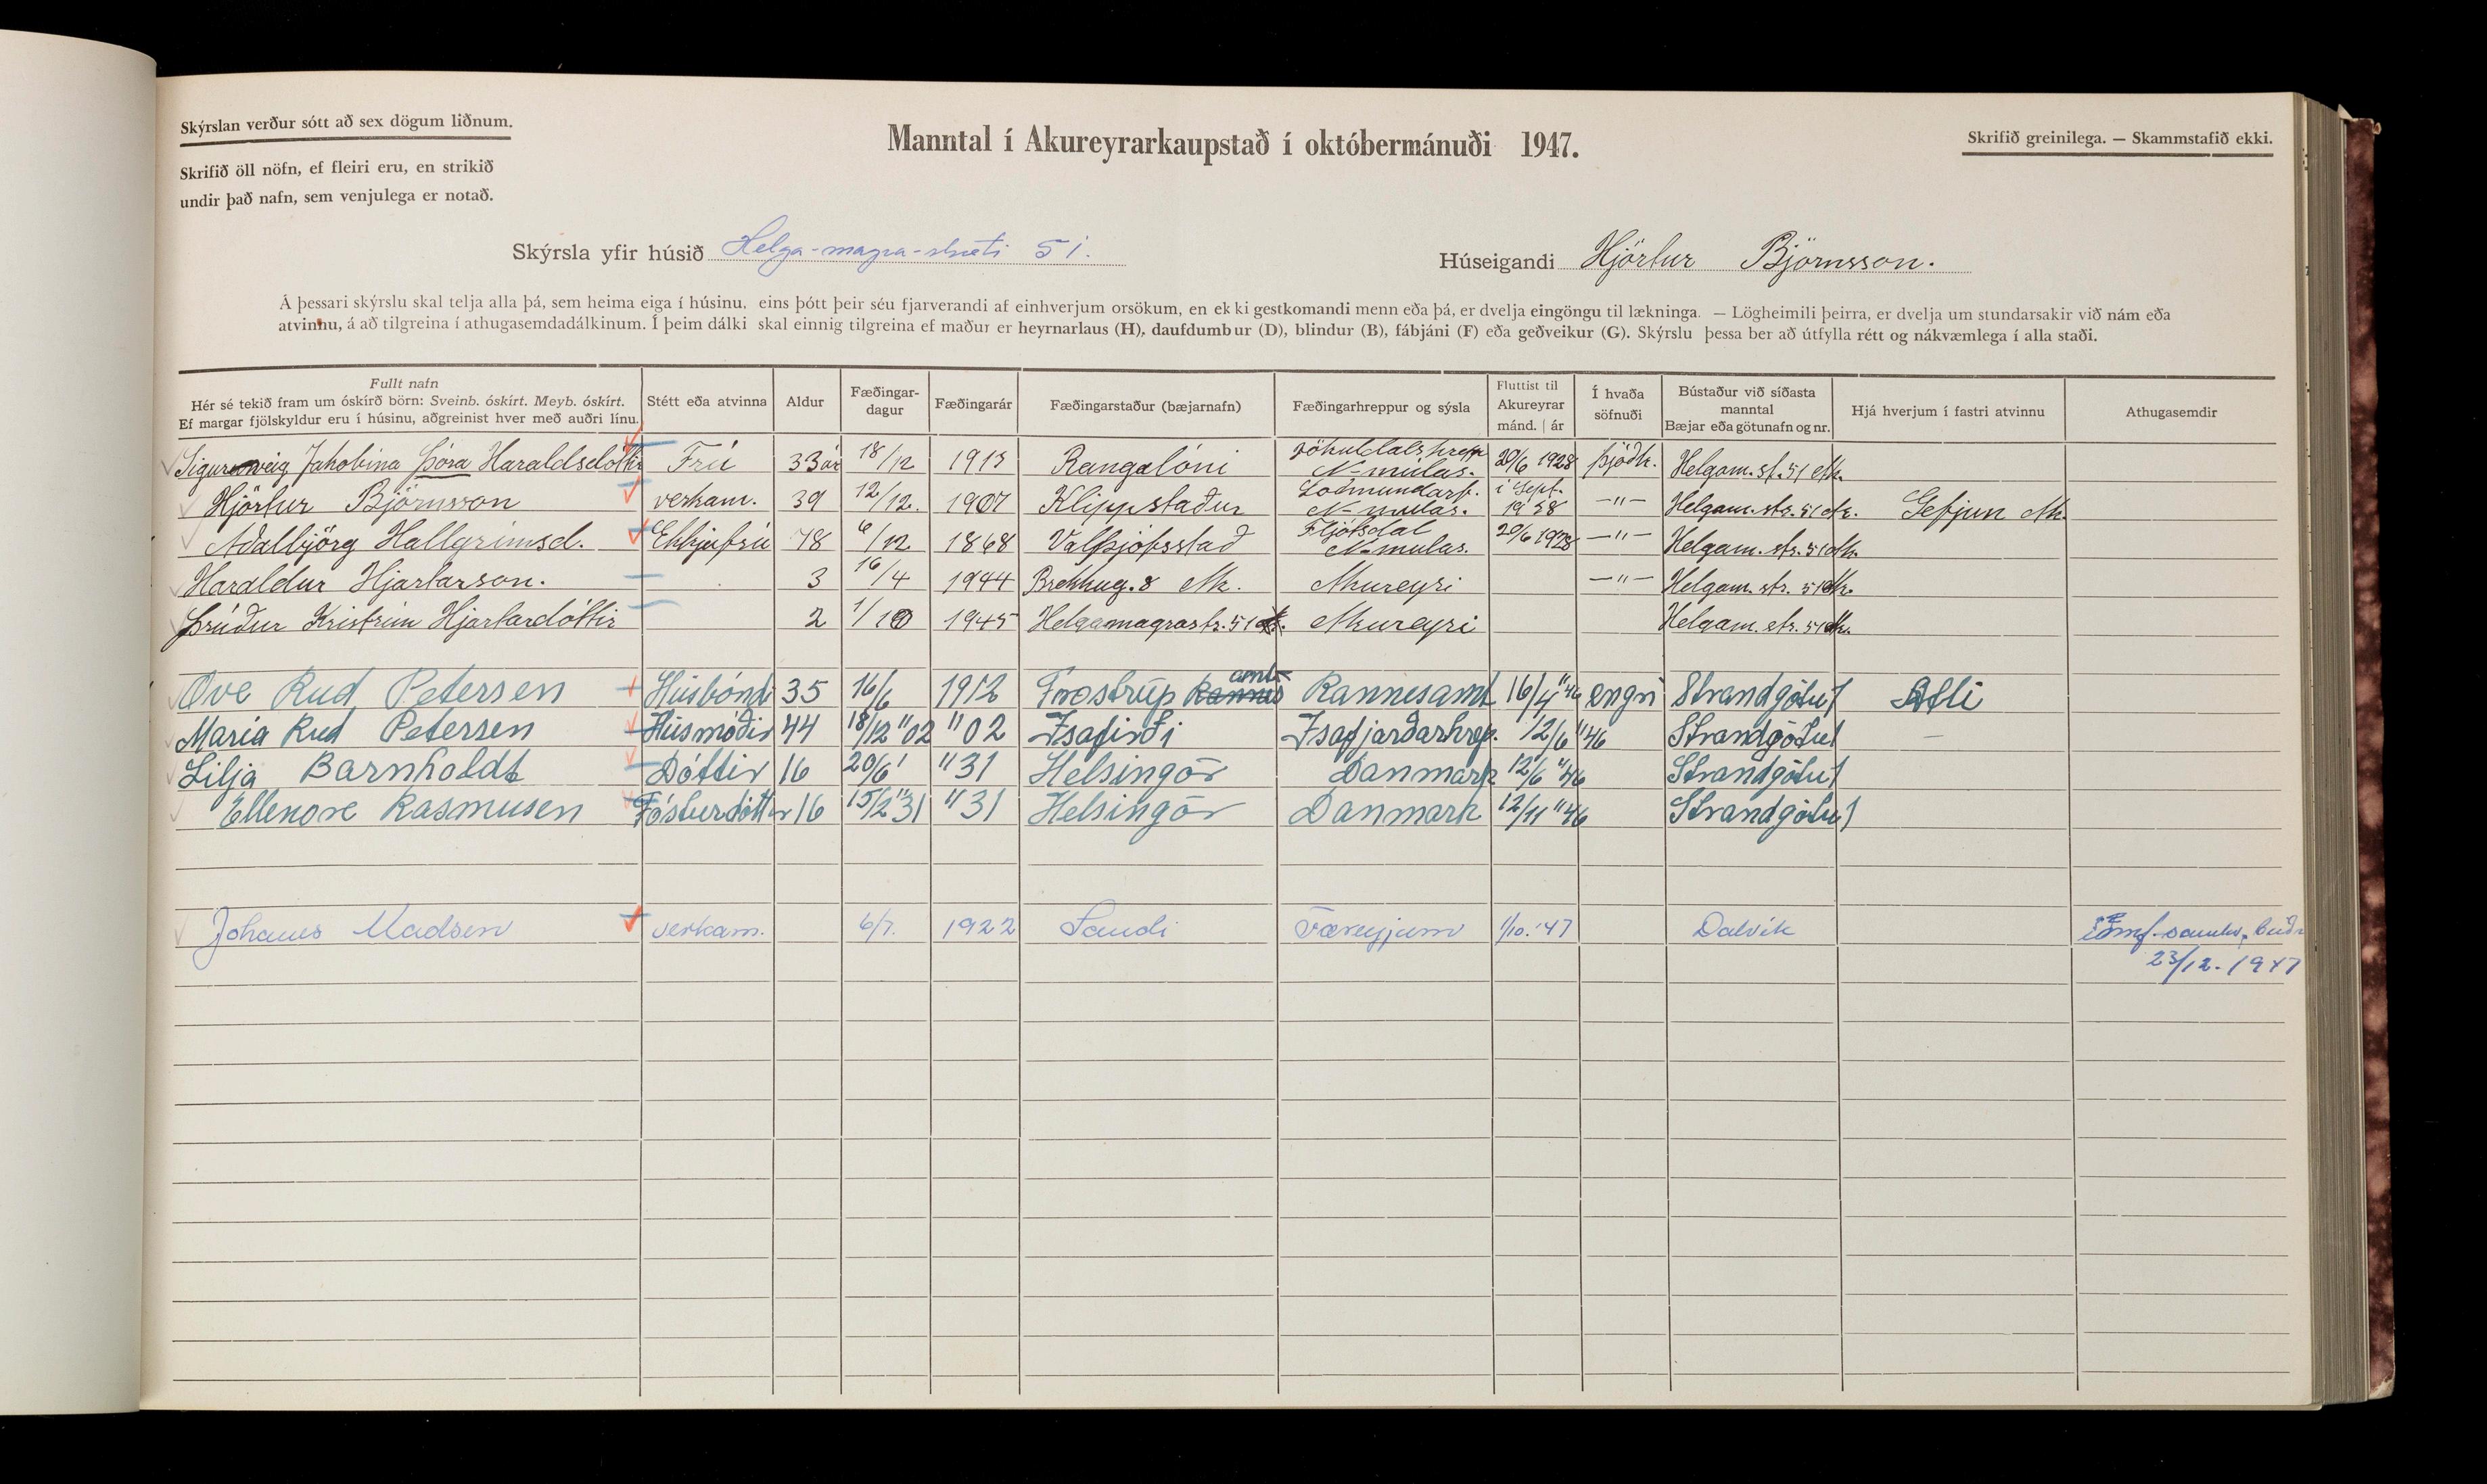 Skýrslan verður sótt að sex dögum liðnum.
Skrifið öll nöfn, ef fleiri eru, en strikið
undir það nafn, sem venjulega er notað.
Manntal í Akureyrarkaupstað í októbermánuði 1947.
Skrifið greinilega. — Skammstafið ekki.
Skýrsla yfir húsið Helga-magra-stræti 51.
Húseigandi Hjörtur Björnsson.
Á þessari skýrslu skal telja alla þá, sem heima eiga í húsinu, eins þótt þeir séu fjarverandi af einhverjum orsökum, en ekki gestkomandi menn eða þá, er dvelja eingöngu til lækninga. — Lögheimili þeirra, er dvelja um stundarsakir við nám eða
atvinnu, á að tilgreina í athugasemdadálkinum. Í þeim dálki skal einnig tilgreina ef maður er heyrnarlaus (H), daufdumbur (D), blindur (B), fábjáni (F) eða geðveikur (G). Skýrslu þessa ber að útfylla rétt og nákvæmlega í alla staði.
Fullt nafn
Hér sé tekið fram um óskírð börn: Sveinb. óskírt. Meyb. óskírt.
Ef margar fjölskyldur eru í húsinu, aðgreinist hver með auðri línu.
Stétt eða atvinna
Aldur
Fæðingar-
dagur
Fæðingarár
Fæðingarstaður (bæjarnafn)
Fæðingarhreppur og sýsla
Fluttist til
Akureyrar
mánd. | ár
Í hvaða
söfnuði
Bústaður við síðasta
manntal
Bæjar eða götunafn og nr.
Hjá hverjum í fastri atvinnu
Athugasemdir
Jakobína Þóra Haraldsdóttir Frú 33 ár 18/12 1913 Rangalóni Jökuldalshrepp N-múlas. 20/6 1928 þjóðk. Helgam.st. 51 Ak.
Hjörtur Björnsson verkam. 39 12/12. 1907 Klippstaður Loðmundarf. N-múlas. í Sept. 1938 —"— Helgam.str. 51 Ak. Gefjun Ak.
Aðalbjörg Hallgrímsd. Ekkjufrú 78 6/12 1868 Valþjófsstað Fljótsdal N-múlas. 20/6 1928 —"— Helgam.str. 51 Ak.
Haraldur Hjartarson. 3 16/4 1944 Brekkug. 8 Ak. Akureyri —"— Helgam.str. 51 Ak.
Þrúður Kristrún Hjartardóttir 2 1/10 1945 Helgamagrastr. 51 Ak. Akureyri Helgam.str. 51 Ak.
Ove Rud Petersen Húsbóndi 35 16/6 1912 Frøstrup amt Rannesamt 16/4 "46 engri Strandgötu 1 Atli
María Rud Petersen Húsmóðir 44 18/12 "02 "02 Ísafirði Ísafjarðarhrep. 12/6 "46 Strandgötu 1 —
Lilja Barnholdt Dóttir 16 20/6 "31 Helsingör Danmark 12/6 "46 Strandgötu 1
Ellenore Rasmusen Fósturdóttir 16 15/2 "31 "31 Helsingör Danmark 12/11 "46 Strandgötu 1
Johanus Madsen verkam. 6/7. 1922 Sandi Færeyjum 1/10.'47 Dalvík
23/12. 1947